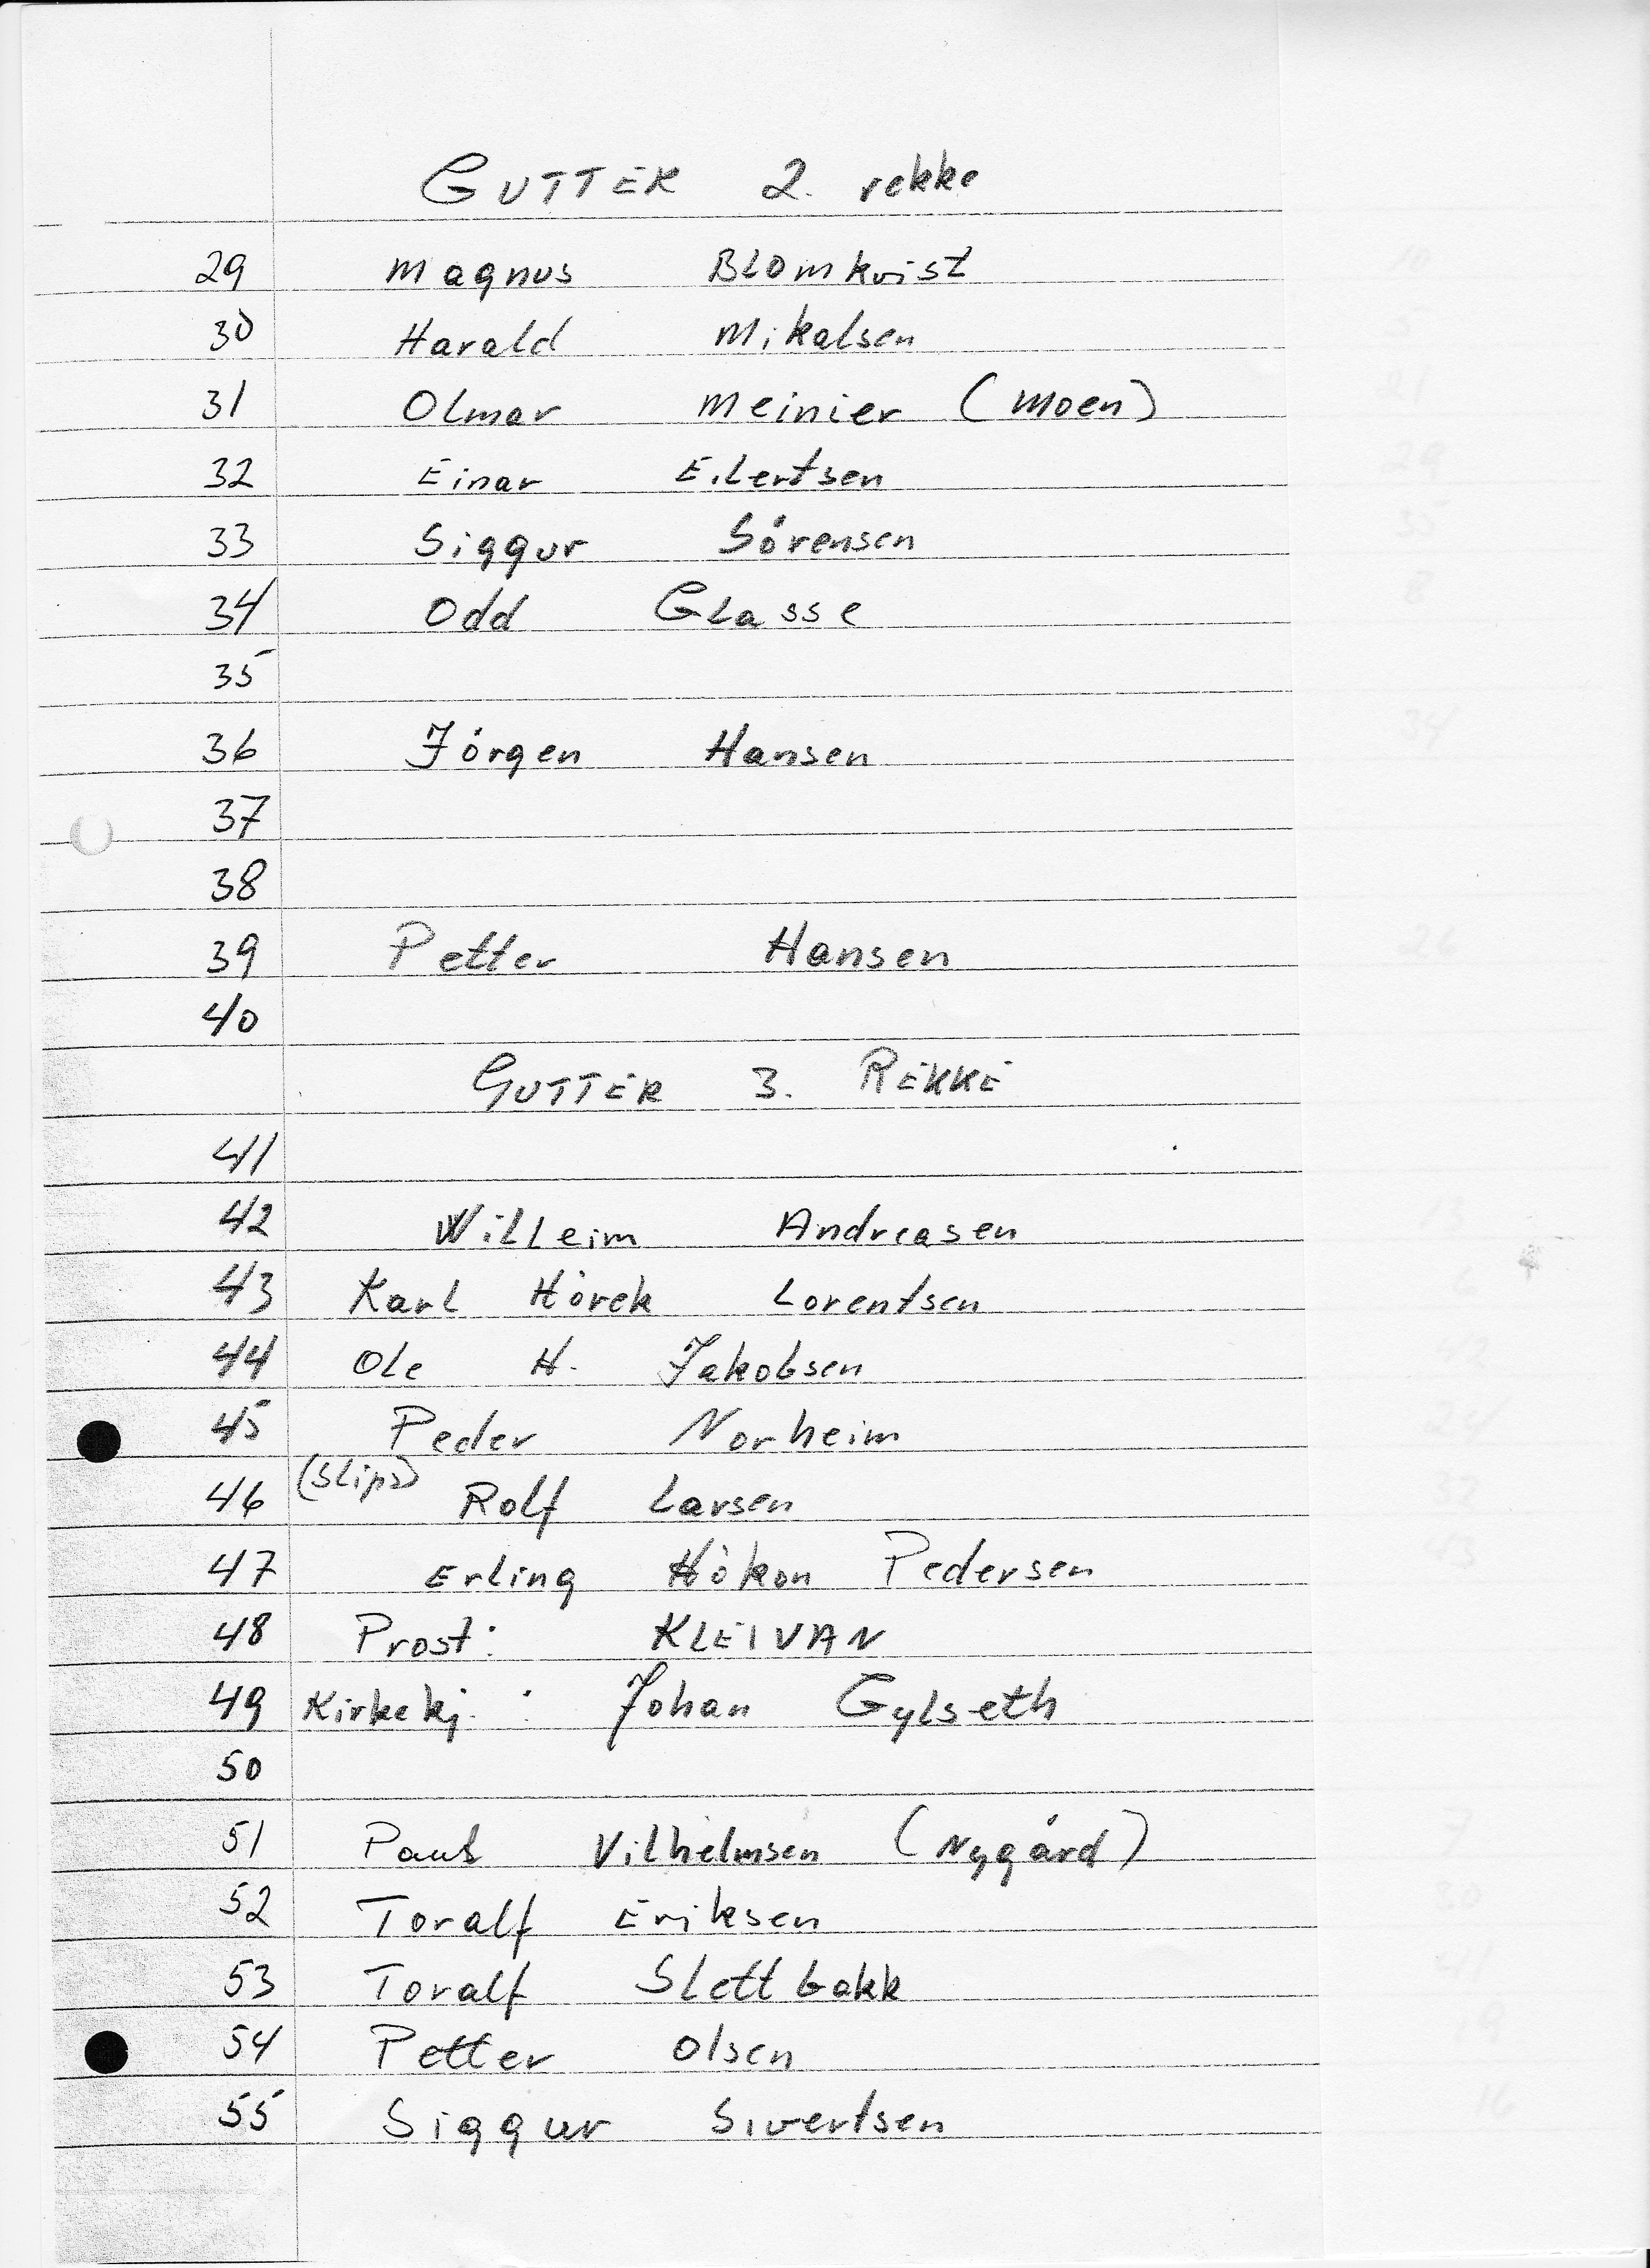 GUTTER 2. rekke
29 Magnus Blomkvist
30 Harald Mikalsen
31 Olmar Meinier (Moen)
32 Einar Eilertsen
33 Siggur Sórensen
34 Odd Glasse
35
36 Jórgen Hansen
37
38
39 Petter Hansen
40
GUTTER 3. REKKE
41
42 Willeim Andreasen
43 Karl Hórek Lorentsen
44 Ole H. Jakobsen
45 Peder Norheim
46 (Slips) Rolf Larsen
47 Erling Håkon Pedersen
48 Prost: KLEIVAN
49 Kirkekj. : Johan Gylseth
50
51 Paul Vilhelmsen (Nygård)
52 Toralf Eriksen
53 Toralf Slettbakk
54 Petter Olsen
55 Siggur Sivertsen